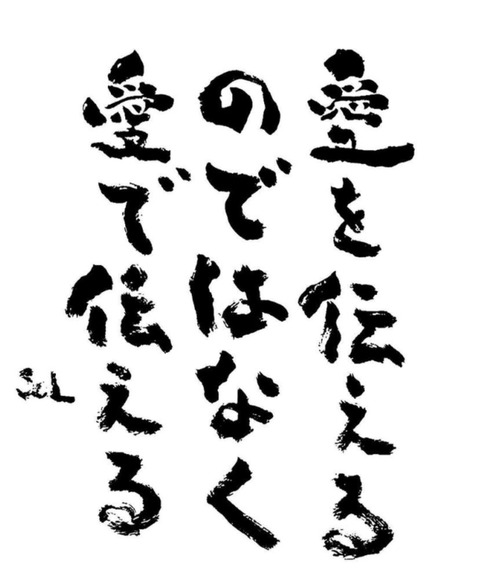 愛を伝える
のではなく
愛で伝える